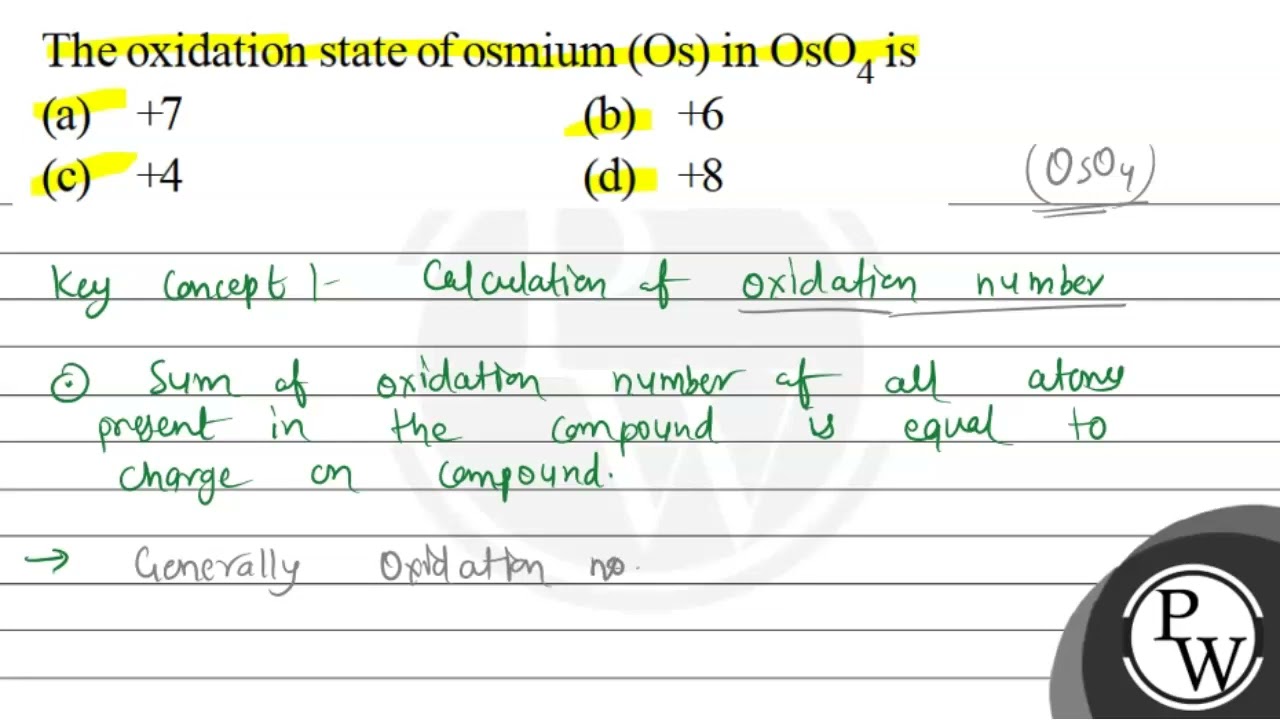 The oxidation state of osmium (Os) in OsO₄ is
(a) +7 (b) +6
(c) +4 (d) +8
(OsO₄)
Key Concept :- Calculation of oxidation number
⊙ Sum of oxidation number of all atoms
present in the compound is equal to
charge on compound.
→ Generally Oxidation no.
P
W